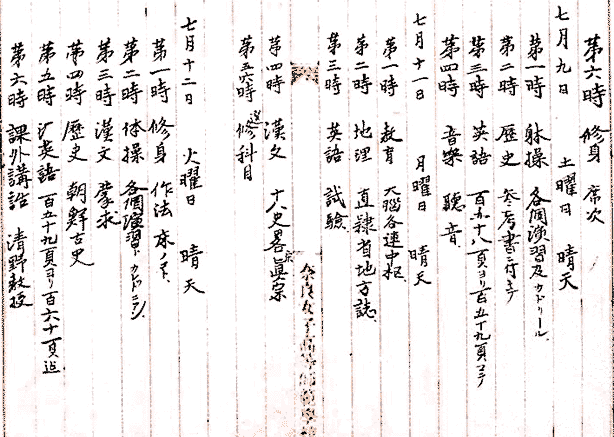 第六時 修身 席次
七月九日 土曜日 晴天
第一時 躰操 各個演習及カドリール
第二時 歴史 参考書ニ付キテ
第三時 英語 百五十八頁ヨリ百五十九頁マデ
第四時 音楽 聴音
七月十一日 月曜日 晴天
第一時 教育 大脳各連中枢
第二時 地理 直隷省地方誌
第三時 英語 試験
第四時 漢文 十八史略 真宗
第五六時 選修科目
七月十二日 火曜日 晴天
第一時 修身 作法
第二時 体操 各個演習ト
第三時 漢文 蒙求
第四時 歴史 朝鮮古史
第五時 英語 百五十九頁ヨリ百六十一頁迄
第六時 課外講話 清野教授